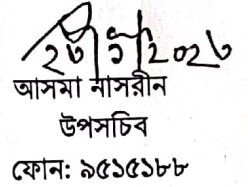 ২৩/১/২০২৩
আসমা নাসরীন
উপসচিব
ফোন: ৯৫১৫১৮৮